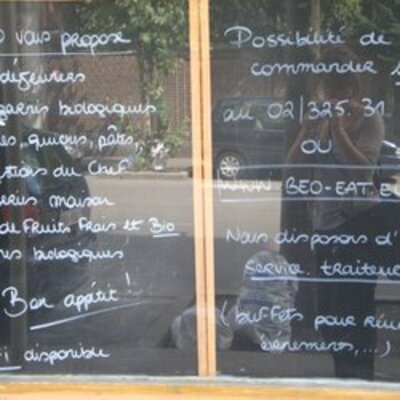 vous propose
garnis biologiques
quiches, pâts,
du Chef
maison
de Fruits Frais et Bio
biologiques
Bon appétit !
disponible
Possibilité de
commander
au 02/325.31
OU
www.beo-eat.e
Nous disposons d'
service traiteur
(buffets pour réu
évènements,...)